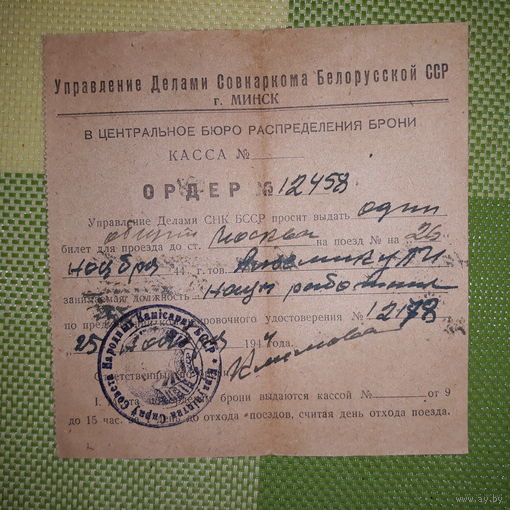 Управление Делами Совнаркома Белорусской ССР
г. МИНСК
В ЦЕНТРАЛЬНОЕ БЮРО РАСПРЕДЕЛЕНИЯ БРОНИ
КАССА №
ОРДЕР № 12458
Управление Делами СНК БССР просит выдать один
общий
билет для проезда до ст. Москва на поезд № на 26
ноября 44 г. тов.
занимаемая должность Науч работник
по удостоверения № 12178
25 ноября 1944
Климова
Ответственный
1. брони выдаются кассой № от 9
до 15 час. до отхода поездов, считая день отхода поезда.
Савета Народных Камісараў БССР
www.ay.by